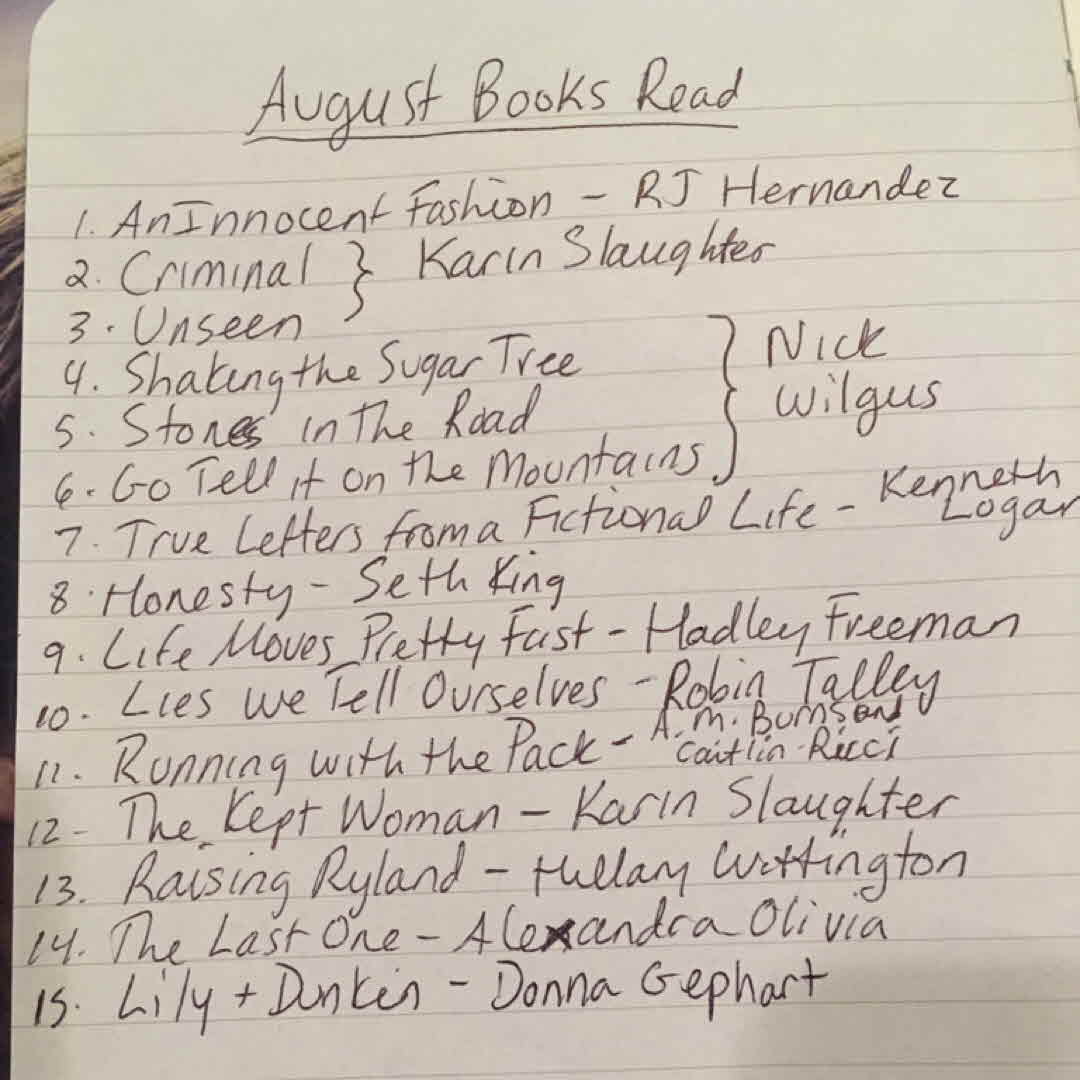 August Books Read
1. An Innocent Fashion - RJ Hernandez
2. Criminal } Karin Slaughter
3. Unseen
4. Shaking the Sugar Tree } Nick
5. Stones in The Road Wilgus
6. Go Tell it on the Mountains
7. True Letters from a Fictional Life - Kenneth Logan
8. Honesty - Seth King
9. Life Moves Pretty Fast - Hadley Freeman
10. Lies We Tell Ourselves - Robin Talley
11. Running with the Pack - A.M. Burns and Caitlin Ricci
12 - The Kept Woman - Karin Slaughter
13. Raising Ryland - Hillary Wittington
14. The Last One - Alexandra Olivia
15. Lily + Dunkin - Donna Gephart